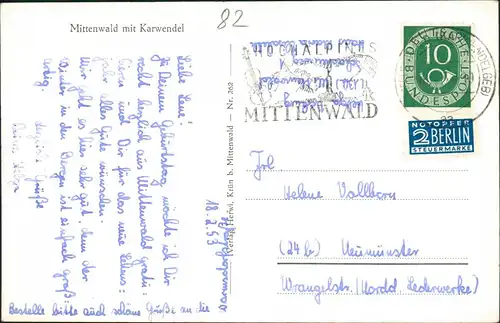 Mittenwald mit Karwendel
82
Liebe Lene!
Zu Deinem Geburtstag möchte ich Dir
recht herzlich aus Mittenwald gratu-
lieren und Dir für das neue Lebens-
jahr alles Gute wünschen.
Uns geht es hier sehr gut, denn der
Winter in den Bergen ist einfach groß-
artig.
Herzliche Grüße
Deine Helga
Bestelle bitte auch schöne Grüße an die
18.2.53
Verlag Herwi, Krün b. Mittenwald — Nr. 262
HOCHALPINES
MITTENWALD
DEUTSCHE
BUNDESPOST
10
NOTOPFER
2 BERLIN
STEUERMARKE
Frl
Helene Vollborn
(24b) Neumünster
Wrangelstr. (Nordd. Lederwerke)